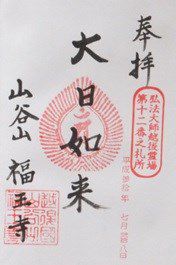 奉拝
弘法大師越後霊場
第十二番之札所
大日如来
平成 拾年 七月 八日
山谷山 福王寺